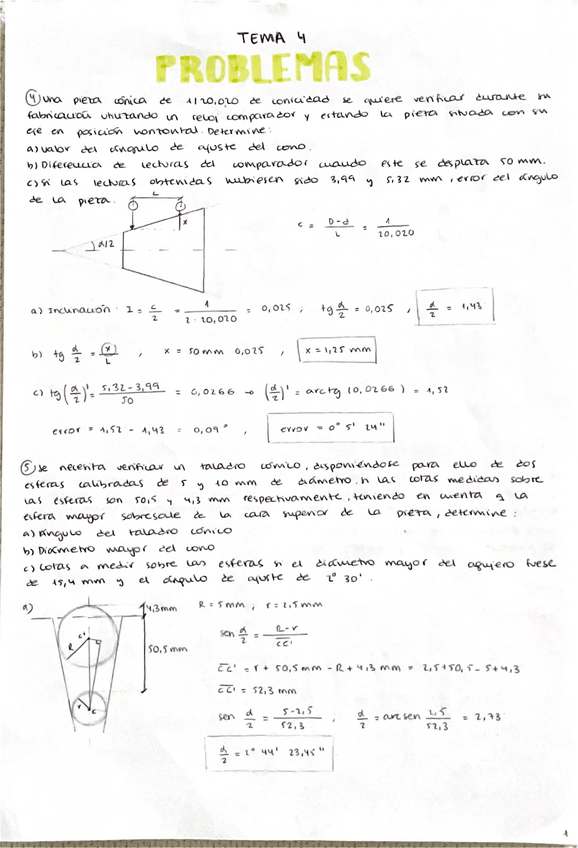 TEMA 4
PROBLEMAS
④ Una pieza cónica de 1/20,020 de conicidad se quiere verificar durante su
fabricación utilizando un reloj comparador y estando la pieza situada con su
eje en posición horizontal. Determine:
a) Valor del ángulo de ajuste del cono.
b) Diferencia de lecturas del comparador cuando éste se desplaza 50 mm.
c) Si las lecturas obtenidas hubiesen sido 3,99 y 5,32 mm, error del ángulo
de la pieza.
L
x
α/2
c = D-d / L = 1 / 20,020
a) Inclinación: I = c/2 = 1 / 2·20,020 = 0,025 ; tg α/2 = 0,025 , α/2 = 1,43
b) tg α/2 = x/L , x = 50mm 0,025 , x = 1,25 mm
c) tg(α/2)' = 5,32-3,99 / 50 = 0,0266 → (α/2)' = arctg (0,0266) = 1,52
error = 1,52 - 1,43 = 0,09° , error = 0° 5' 24"
⑤ Se necesita verificar un taladro cónico, disponiéndose para ello de dos
esferas calibradas de 5 y 10 mm de diámetro. Si las cotas medidas sobre
las esferas son 50,5 y 4,3 mm respectivamente, teniendo en cuenta q la
esfera mayor sobresale de la cara superior de la pieza, determine:
a) Ángulo del taladro cónico
b) Diámetro mayor del cono
c) Cotas a medir sobre las esferas si el diámetro mayor del agujero fuese
de 15,4 mm y el ángulo de ajuste de 2° 30'.
a)
4,3mm
50,5 mm
C'
R
r
C
R = 5 mm ; r = 2,5 mm
sen α/2 = R-r / CC'
CC' = r + 50,5 mm - R + 4,3 mm = 2,5+50,5-5+4,3
CC' = 52,3 mm
sen α/2 = 5-2,5 / 52,3 , α/2 = arcsen 2,5 / 52,3 = 2,73
α/2 = 2° 44' 23,45"
1